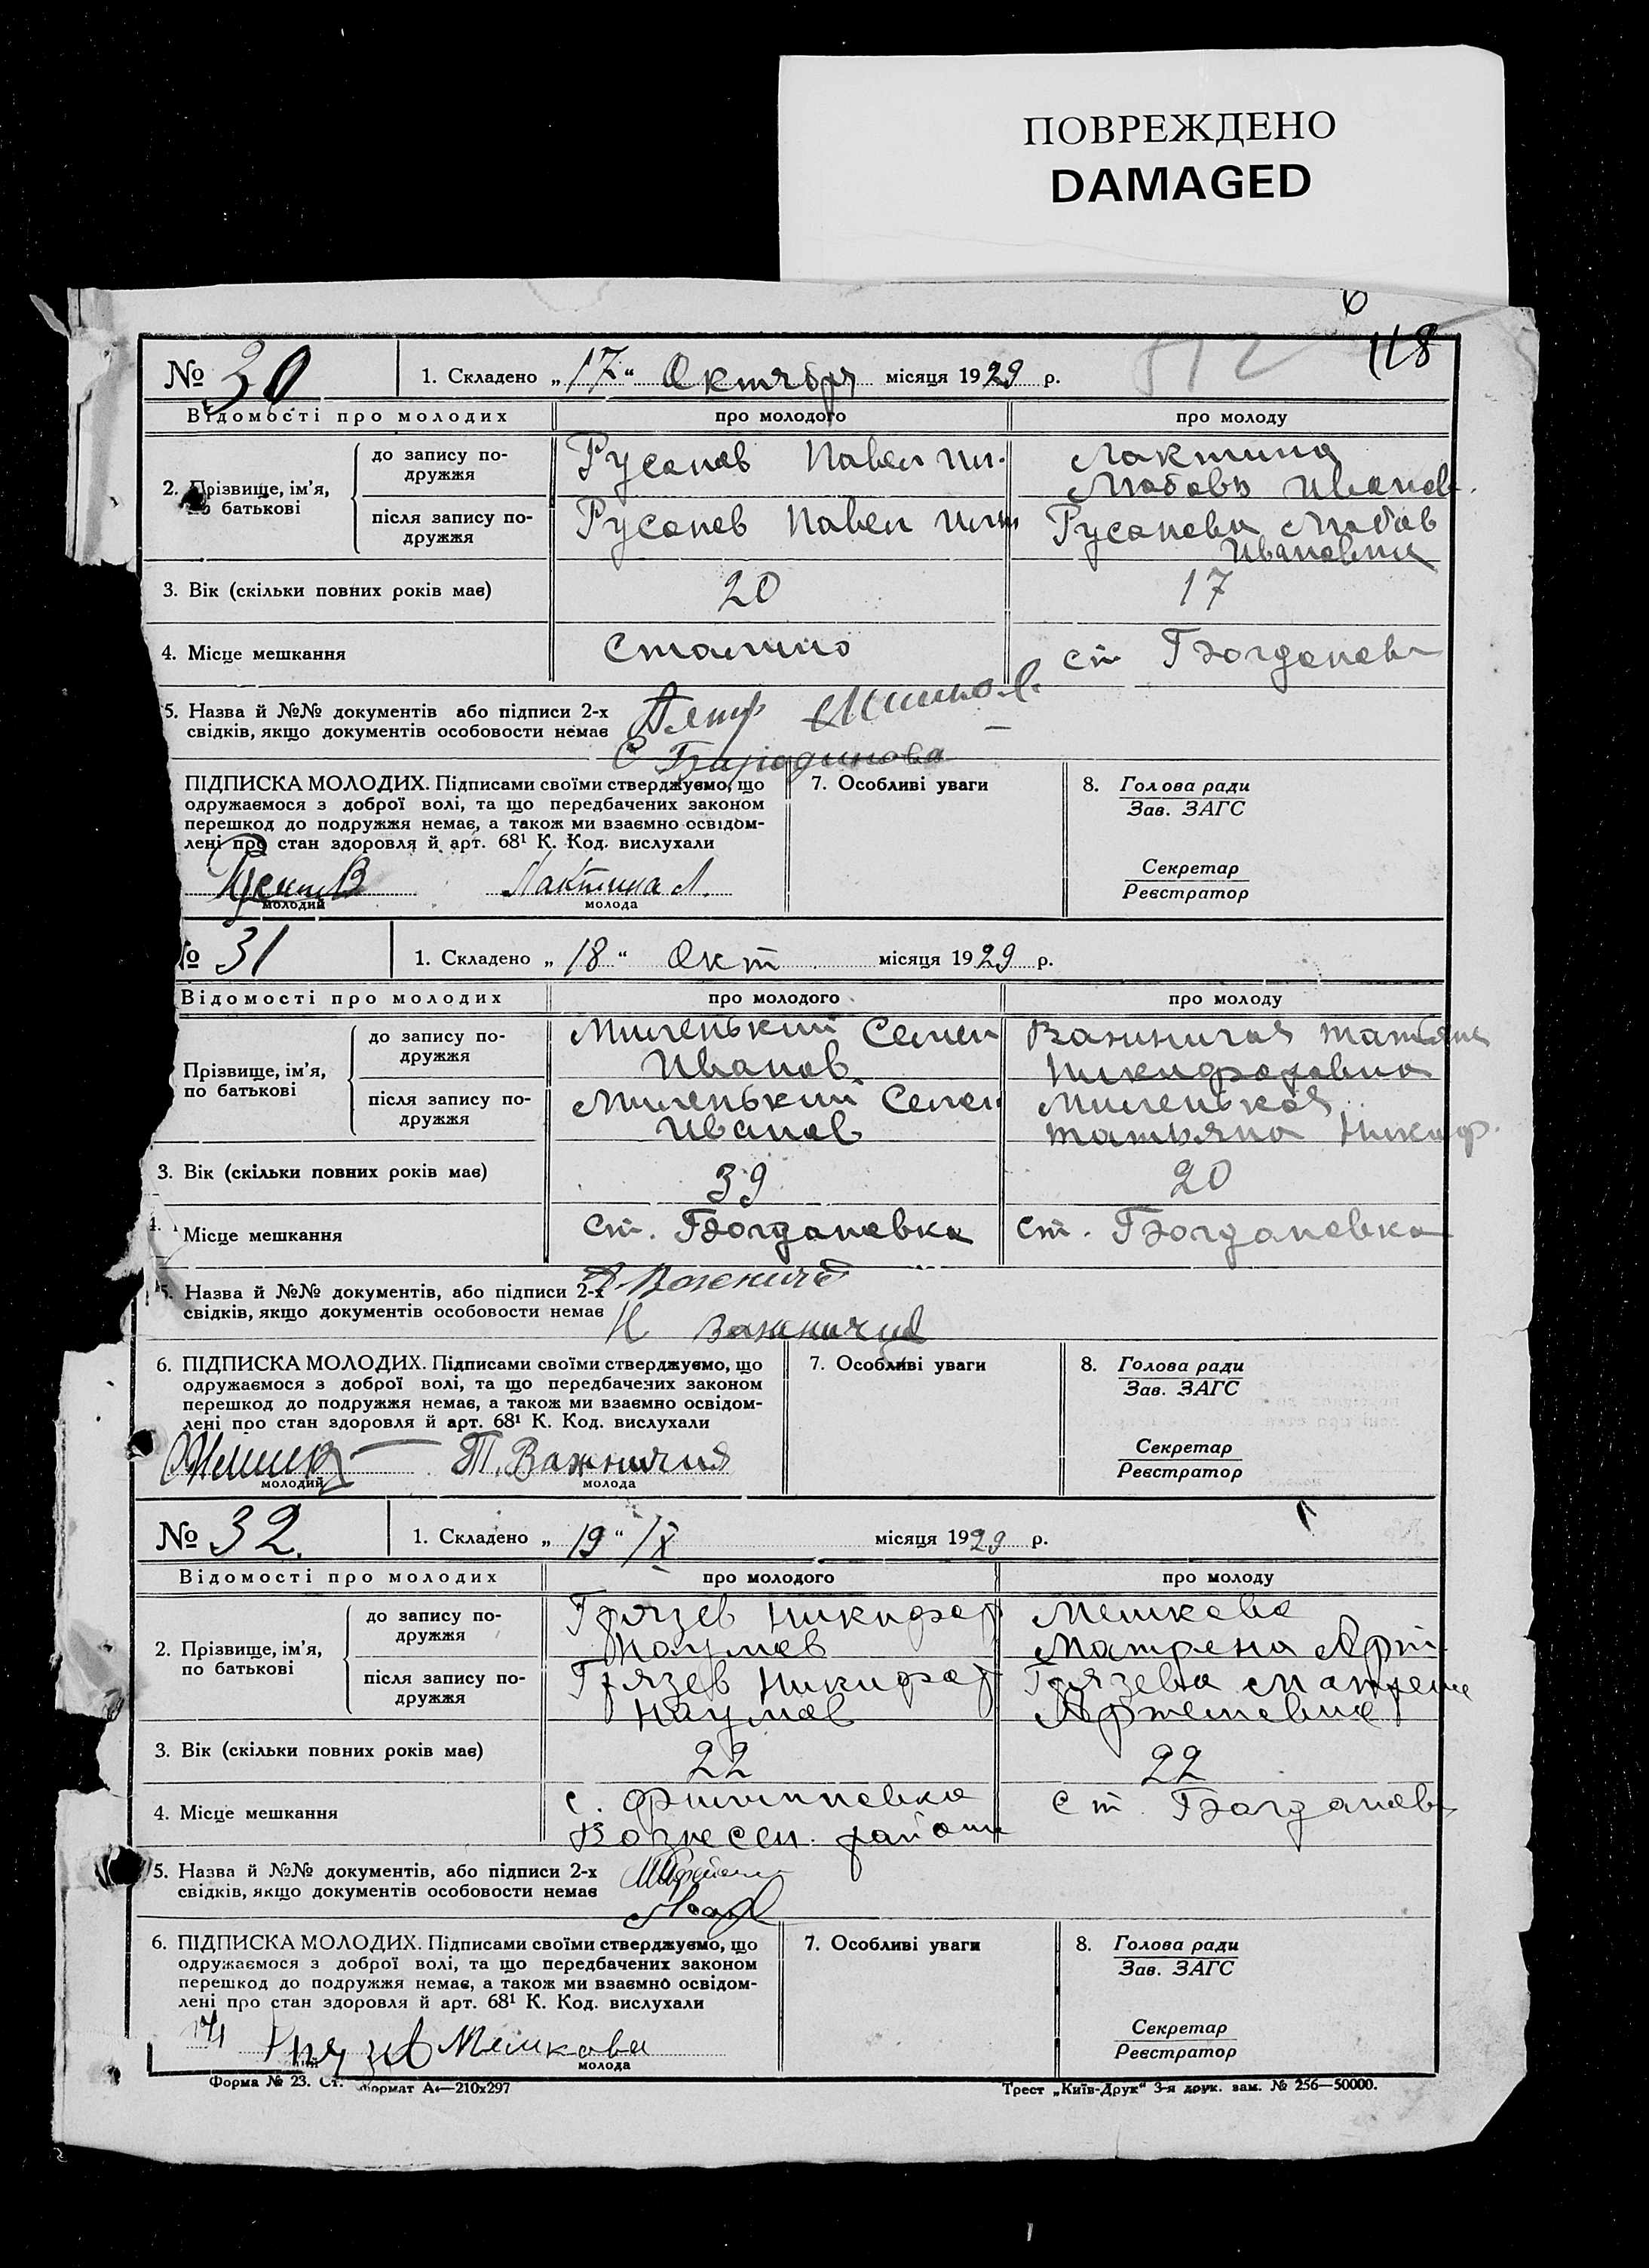 ПОВРЕЖДЕНО
DAMAGED
6
118
№ 30 1. Складено „17“ Октября місяця 1929 р.
Відомості про молодих про молодого про молоду
2. Прізвище, ім’я, по батькові
до запису подружжя Русанов Павел Лактина
Любовь Иванов.
після запису подружжя Русанов Павел Русанова Любов
Ивановна
3. Вік (скільки повних років має) 20 17
4. Місце мешкання Сталино ст Богданов
5. Назва й №№ документів або підписи 2-х Петр
свідків, якщо документів особовости немає С
ПІДПИСКА МОЛОДИХ. Підписами своїми стверджуємо, що 7. Особливі уваги 8. Голова ради
одружаємося з доброї волі, та що передбачених законом Зав. ЗАГС
перешкод до подружжя немає, а також ми взаємно освідом-
лені про стан здоровля й арт. 68¹ К. Код. вислухали Секретар
Лактина Л. Реєстратор
молодий молода
№ 31 1. Складено „18“ Окт місяця 1929 р.
Відомості про молодих про молодого про молоду
Прізвище, ім’я, по батькові
до запису подружжя Миленький Семен Важничая Татьяна
Иванов Никифоровна
після запису подружжя Миленький Семен Миленькая
Иванов Татьяна Никиф.
3. Вік (скільки повних років має) 39 20
4. Місце мешкання ст. Богдановка ст. Богдановка
5. Назва й №№ документів, або підписи 2-х
свідків, якщо документів особовости немає Н
6. ПІДПИСКА МОЛОДИХ. Підписами своїми стверджуємо, що 7. Особливі уваги 8. Голова ради
одружаємося з доброї волі, та що передбачених законом Зав. ЗАГС
перешкод до подружжя немає, а також ми взаємно освідом-
лені про стан здоровля й арт. 68¹ К. Код. вислухали Секретар
Т. Важничия Реєстратор
молодий молода
№ 32. 1. Складено „19“ /X місяця 1929 р.
Відомості про молодих про молодого про молоду
2. Прізвище, ім’я, по батькові
до запису подружжя Грязев Никифор Мешкова
Наумов Матрена Арт.
після запису подружжя Грязев Никифор Грязева Матрена
Наумов Артемовна
3. Вік (скільки повних років має) 22 22
4. Місце мешкання с. Филипповка ст. Богданов
Вознесен. района
5. Назва й №№ документів, або підписи 2-х
свідків, якщо документів особовости немає
6. ПІДПИСКА МОЛОДИХ. Підписами своїми стверджуємо, що 7. Особливі уваги 8. Голова ради
одружаємося з доброї волі, та що передбачених законом Зав. ЗАГС
перешкод до подружжя немає, а також ми взаємно освідом-
лені про стан здоровля й арт. 68¹ К. Код. вислухали Секретар
Грязев Мешкова Реєстратор
молода
Форма № 23. Ст. формат А4—210х297 Трест „Київ-Друк“ 3-я друк. зам. № 256—50000.